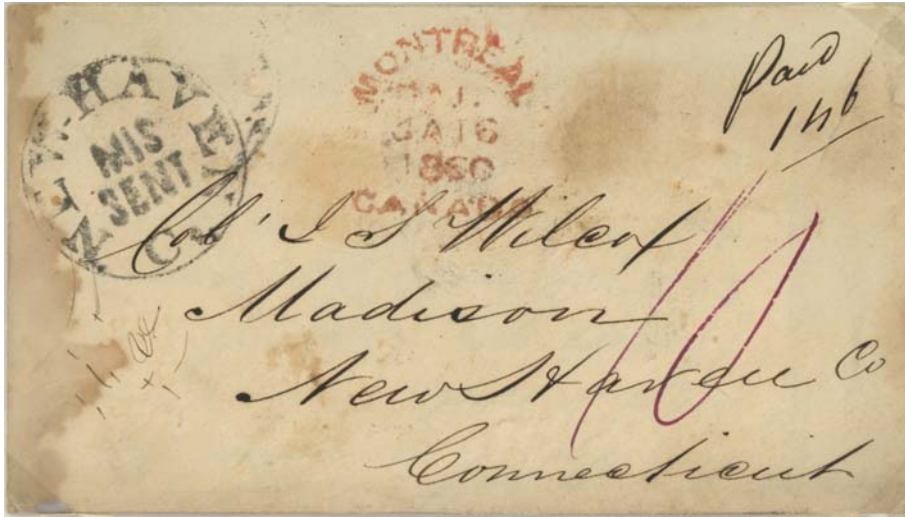 NEW-HAVEN Ct
MIS
SENT
MONTREAL
JA 16
1860
CANADA
Paid
146
Col I S Wilcox
Madison
New Haven Co
Connecticut
10